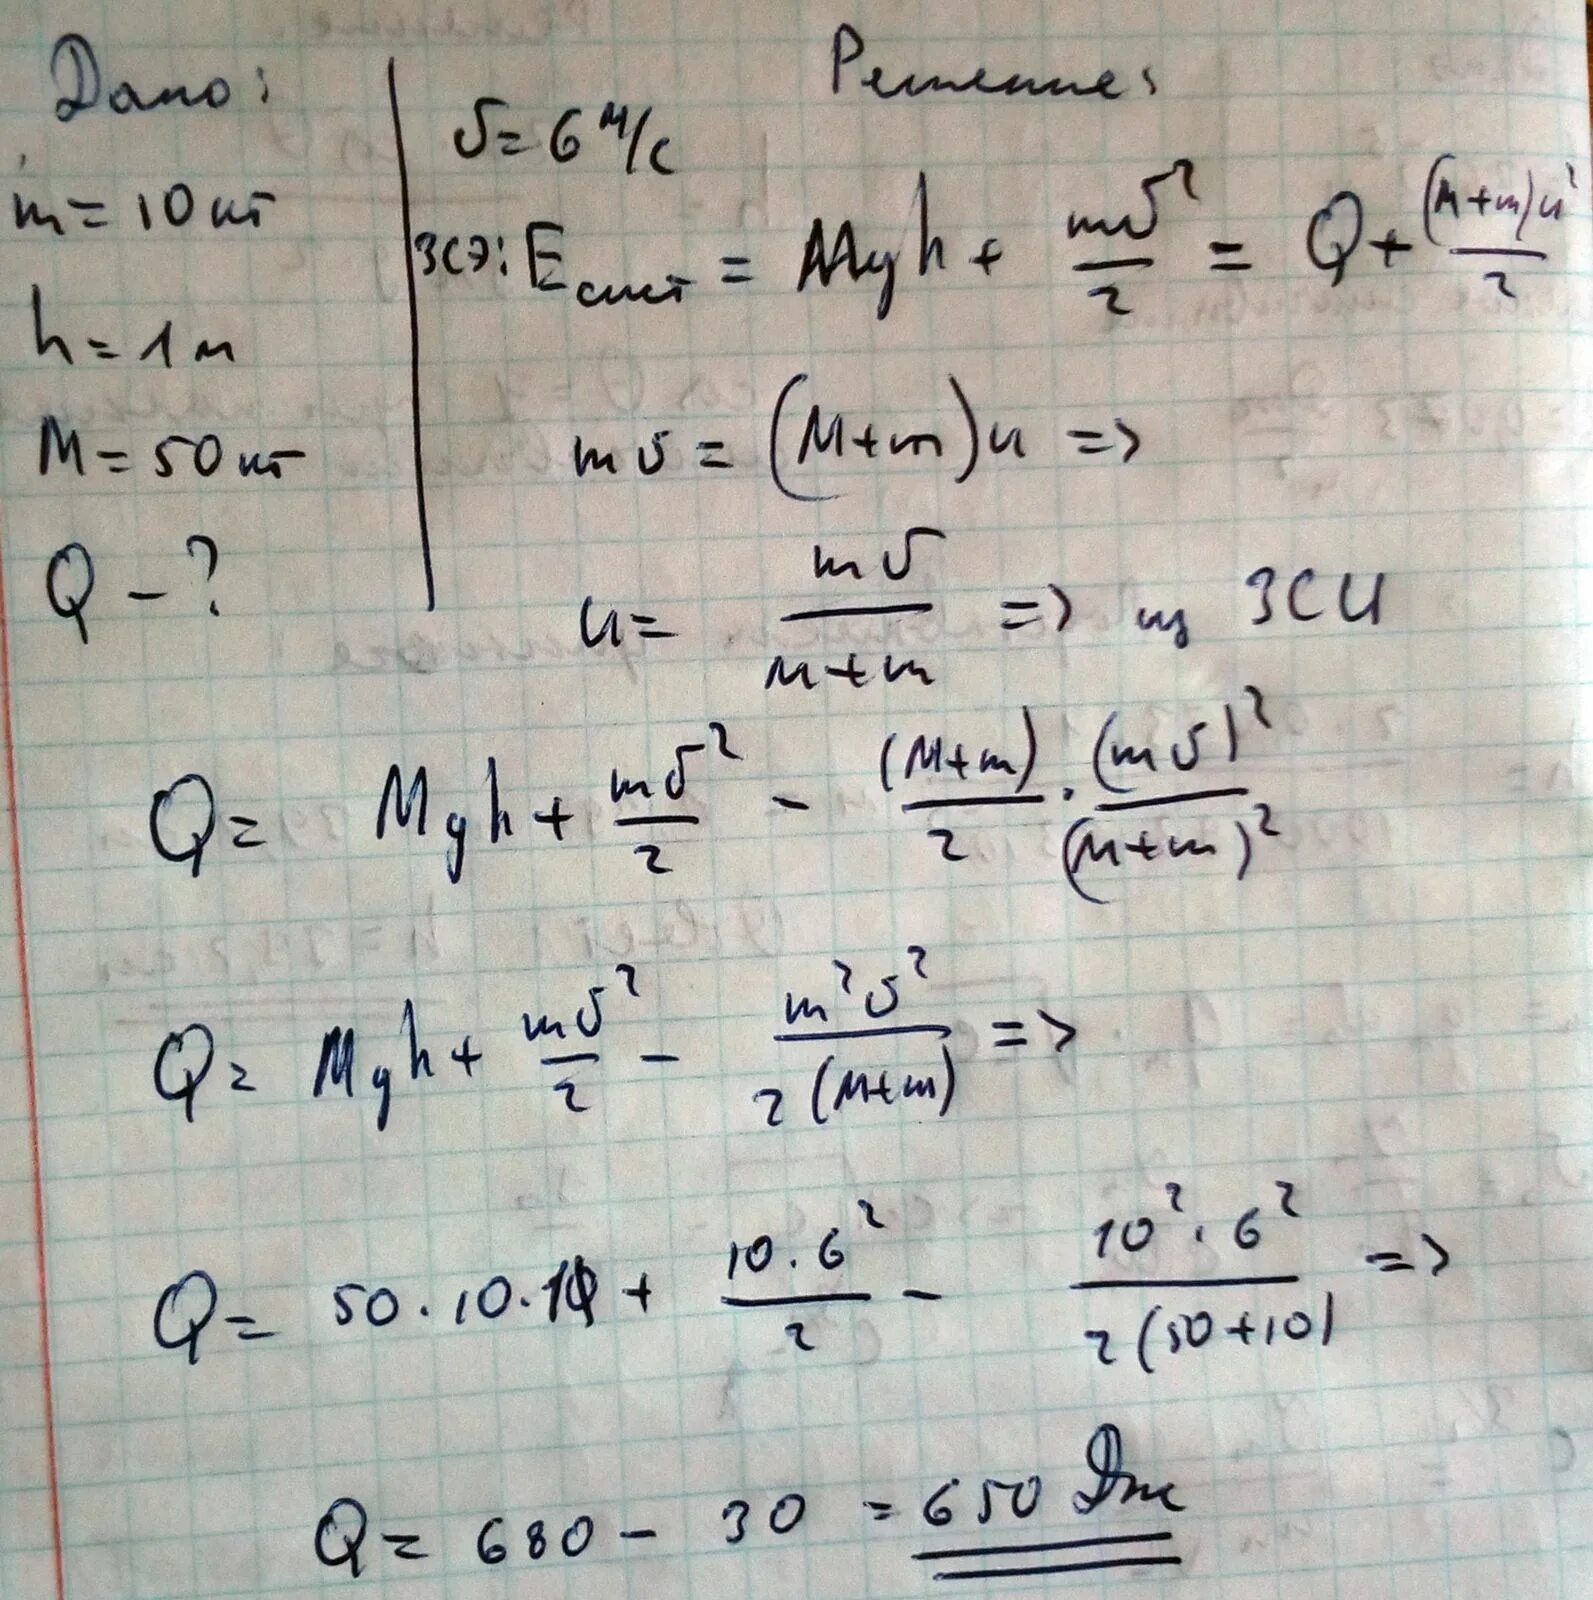 Дано:
m = 10 кг
h = 1 м
M = 50 кг
Q - ?
Решение:
υ = 6 м/с
ЗСЭ: Eсист = Mgh + mυ²/2 = Q + (M+m)u²/2
mυ = (M+m)u =>
u = mυ/(M+m) => из ЗСИ
Q = Mgh + mυ²/2 - (M+m)/2 · (mυ)²/(M+m)²
Q = Mgh + mυ²/2 - m²υ²/2(M+m) =>
Q = 50·10·1 + 10·6²/2 - 10²·6²/2(50+10) =>
Q = 680 - 30 = 650 Дж